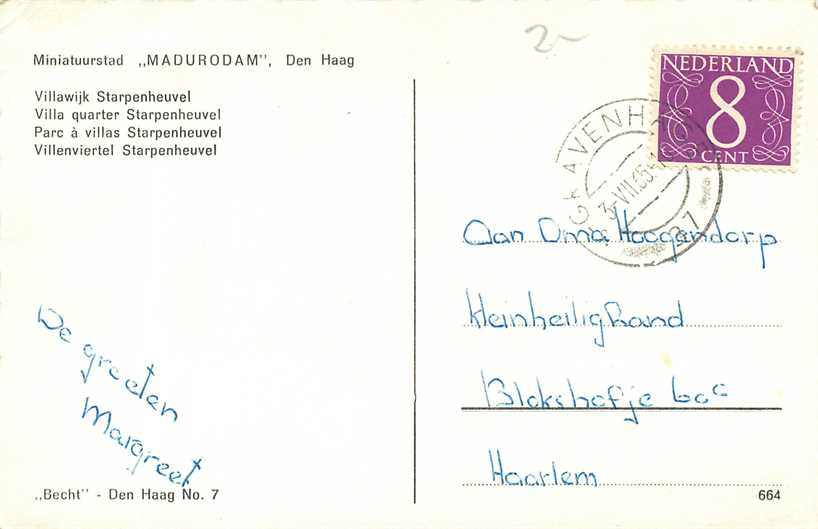 2-
Miniatuurstad „MADURODAM", Den Haag
Villawijk Starpenheuvel
Villa quarter Starpenheuvel
Parc à villas Starpenheuvel
Villenviertel Starpenheuvel
NEDERLAND
8
CENT
GRAVENH
3-VII.65
Aan Onna Hoogendorp
kleinheilighand
Blokshofje 60c
Haarlem
De greeten
Margreet
„Becht" - Den Haag No. 7
664